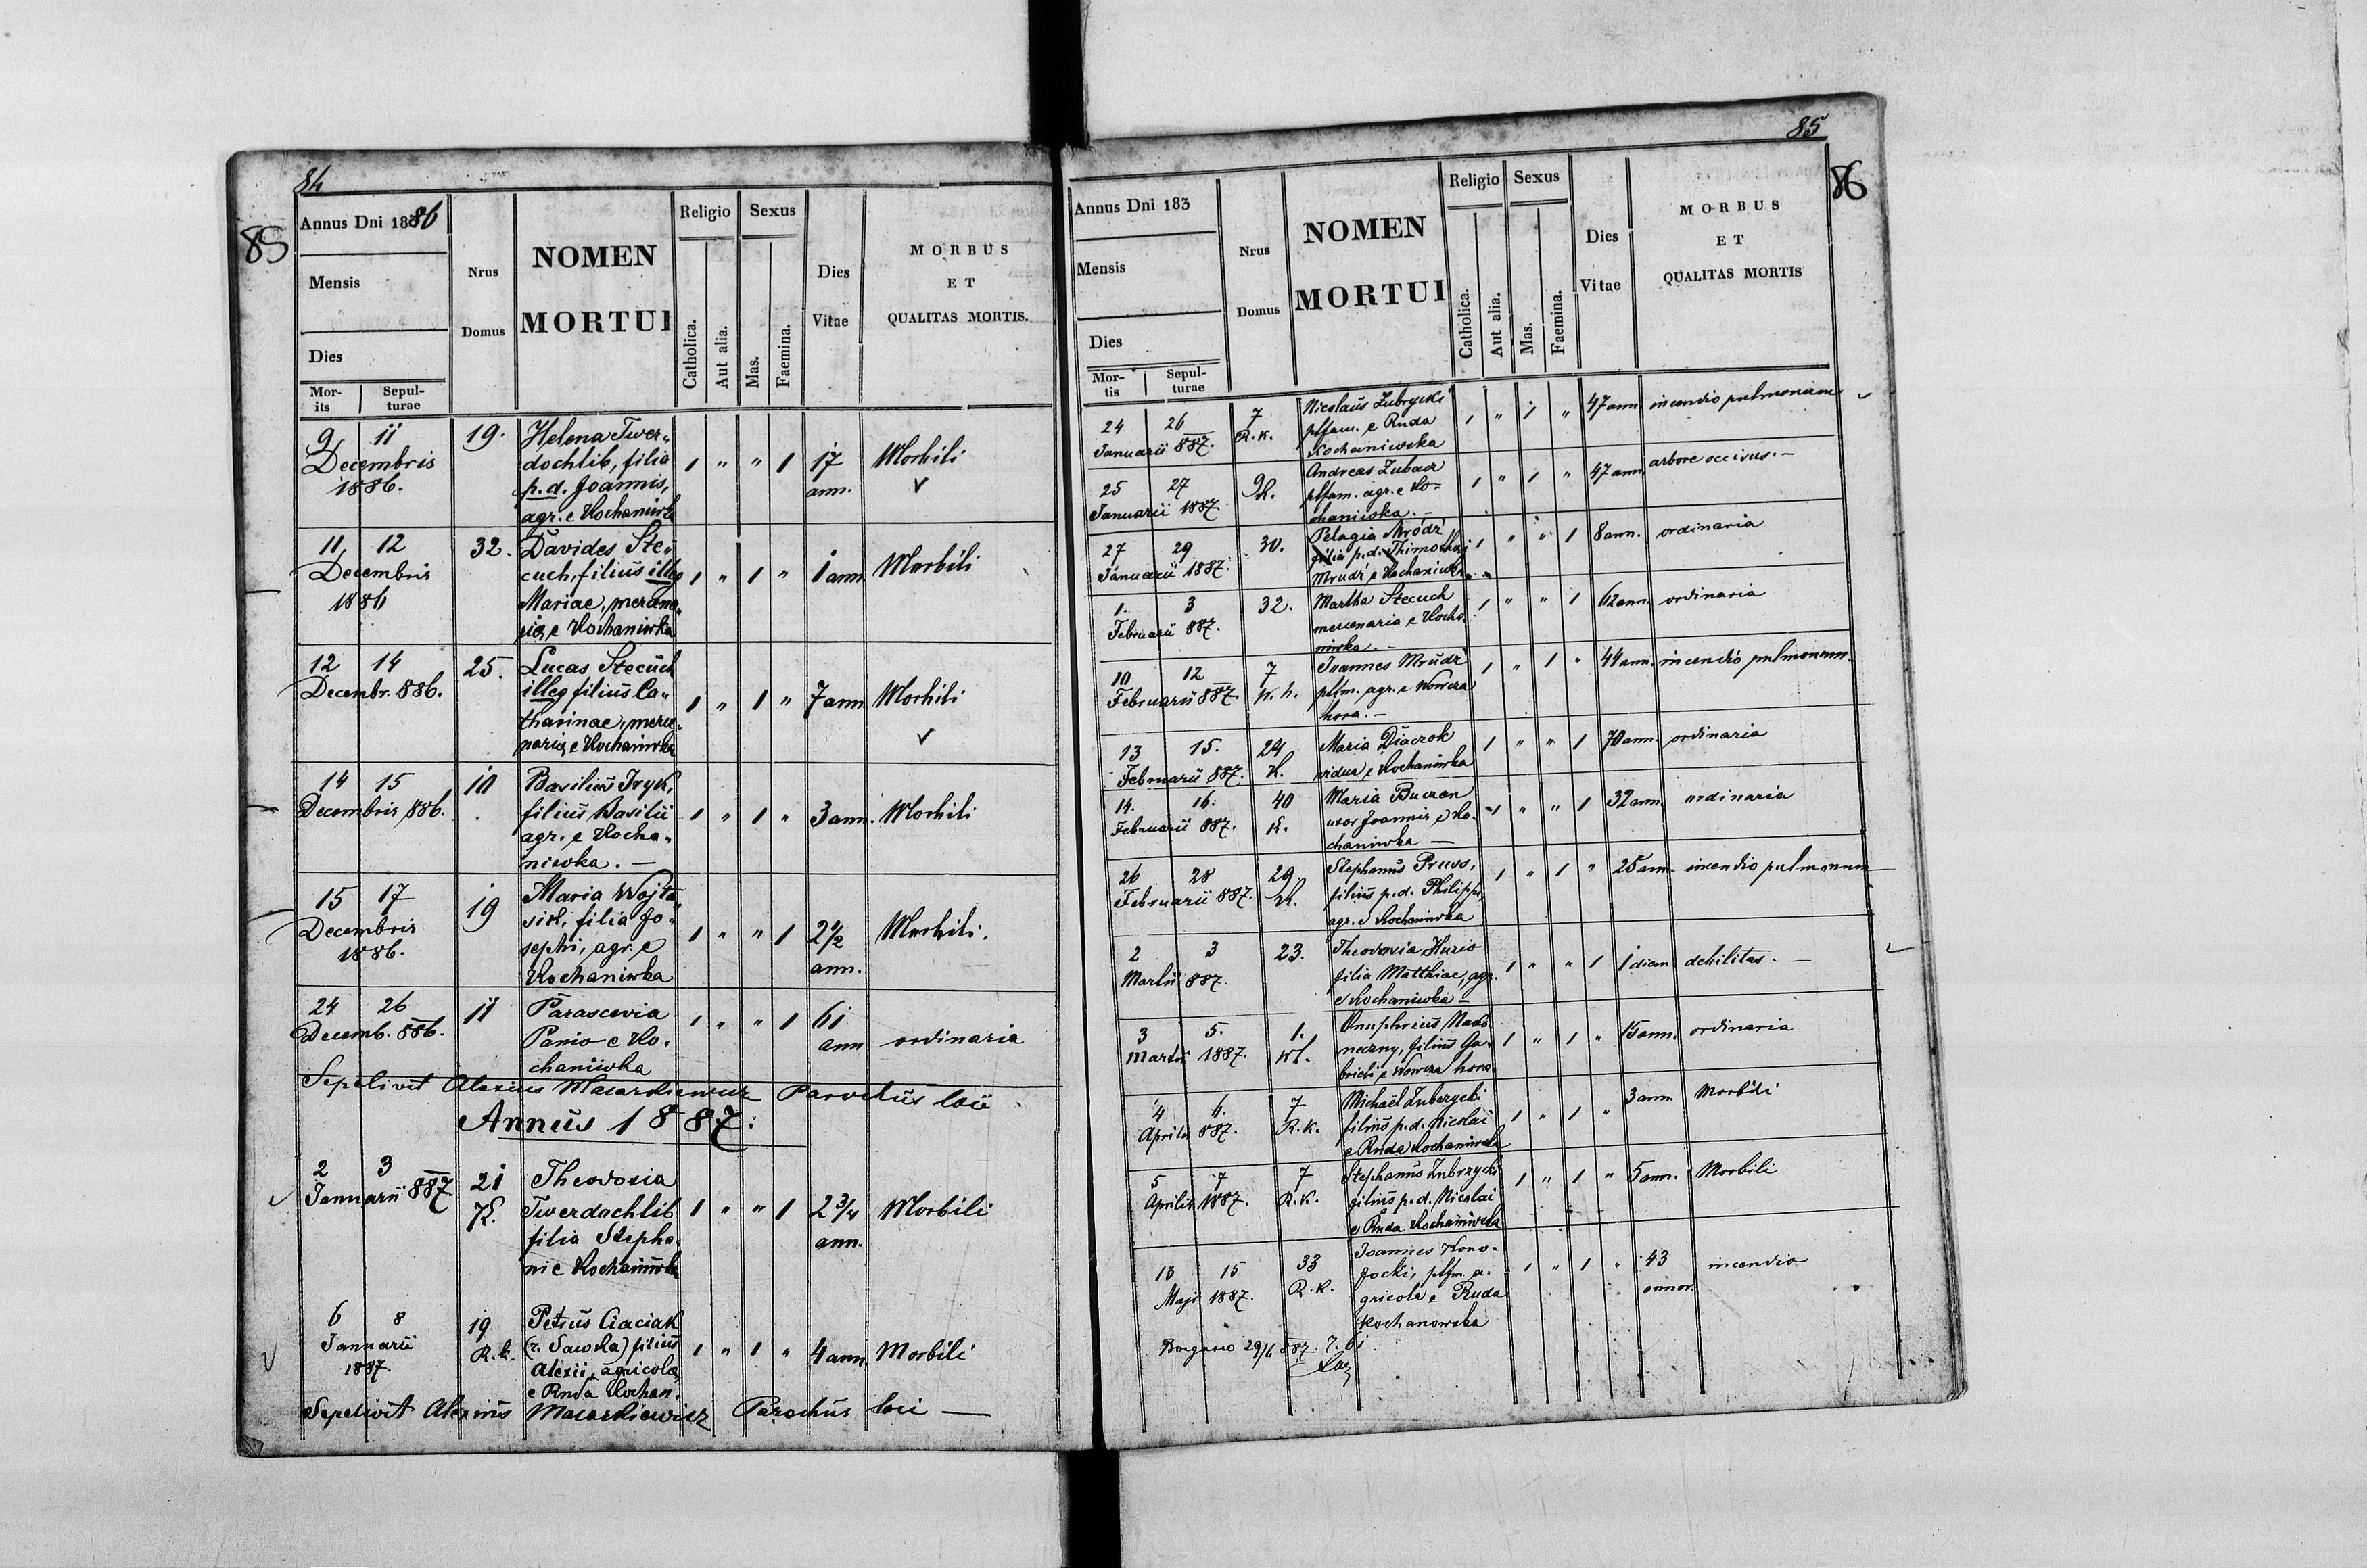 84
85
Annus Dni 1886
Mensis
Dies
Mor-
its
Sepul-
turae
Nrus
Domus
NOMEN
MORTUI
Religio
Catholica.
Aut alia.
Sexus
Mas.
Faemina.
Dies
Vitae
MORBUS
ET
QUALITAS MORTIS.
9 11 19. Helena Twer-
Decembris dochlib, filia 1 " " 1 17 Morbili
1886. p. d. Joannis, ann.
agr. e Kochaniwka
11 12 32. Davides Ste-
Decembris cuch, filius illeg 1 " 1 " 1 ann Morbili
1886 Mariae, mercena-
riae, e Kochaniwka
12 14 25. Lucas Stecuch
Decembr. 886. illeg filius Ca- 1 " 1 " 7 ann Morbili
tharinae, merce-
nariae, e Kochaniwka
14 15 10 Basilius Iryk,
Decembris 886. filius Basilii 1 " 1 " 3 ann. Morbili
agr. e Kocha-
niwka. —
15 17 19 Maria Wojta-
Decembris filia Jo- 1 " " 1 2 1/2 Morbili.
1886. sephi, agr. e ann.
Kochaniwka
24 26 11 Parascevia 1 " " 1 61
Decemb. 886. Panio e Ko- ann ordinaria
chaniwka
Sepelivit Alexius Macarkiewicz Parochus loci
Annus 1887:
2 3 21 Theodosia
Januarii 887 K. Twerdochlib 1 " " 1 2 3/4 Morbili
filia Stepha- ann.
ni e Kochaniwka
6 8 19 Petrus Ciaciak
Januarii R. k. (r. Sawka) filius 1 " 1 " 4 ann Morbili
1887. Alexii, agricolae,
e Ruda Kochan.
Sepelivit Alexius Macarkiewicz Parochus loci —
85
86
Annus Dni 183
Mensis
Dies
Mor-
tis
Sepul-
turae
Nrus
Domus
NOMEN
MORTUI
Religio
Catholica.
Aut alia.
Sexus
Mas.
Faemina.
Dies
Vitae
MORBUS
ET
QUALITAS MORTIS
24 26 7 Nicolaus Zubrycki 1 " 1 " 47 ann incendio pulmonum
Januarii 887. R. K. ptfam. e Ruda
Kochaniwska
25 27 Andreas Zubacz 1 " 1 " 47 ann arbore occisus. —
Januarii 1887 ptfam. agr. e Ko-
chaniwka. —
27 29 30. Pelagia Mródź 1 " " 1 8 ann. ordinaria
Januarii 1887. filia p. d. Thimothei
Mrudź e Kochaniwka
1. 3 32. Martha Stecuch 1 " " 1 62 ann. ordinaria
Februarii 887. mercenaria e Kocha-
niwka. —
10 12 7 Joannes Mrudź 1 " 1 " 44 ann. incendio pulmonum.
Februarii 887. W. h. ptfm. agr. e Wowcza
hora. —
13 15. 24 Maria Diaczok 1 " " 1 70 ann. ordinaria
Februarii 887. K. vidua e Kochaniwka
14. 16. 40 Maria Buczen 1 " " 1 32 ann ordinaria
Februarii 887. K. uxor Joannis e Ko-
chaniwka —
26 28 29. Stephanus Pruss, 1 " 1 " 25 ann. incendio pulmonum
Februarii 887. K. filius p. d. Philippi,
agr. e Kochaniwka
2 3 23. Theodosia 1 " " 1 1 diem debilitas. —
Martii 887. filia Matthiae, agr.
e Kochaniwka —
3 5. 1. Onuphrius 1 " 1 " 15 ann. ordinaria
Martii 1887. filius Ga-
brieli e Wowcza hora
4 6. 7 Michaël Zubrzycki 1 " 1 " 3 ann. Morbili
Aprilis 887. R. k. filius p. d. Nicolai
e Ruda Kochaniwska
5 7 7 Stephanus Zubrzycki 1 " 1 " 5 ann. Morbili
Aprilis 1887. R. K. filius p. d. Nicolai
e Ruda Kochaniwska
13 15 33 Joannes Kono- 1 " 1 " 43 incendio
Maji 1887. R. K. ptfm. a- annor.
gricola e Ruda
Kochanowska
29/6 887